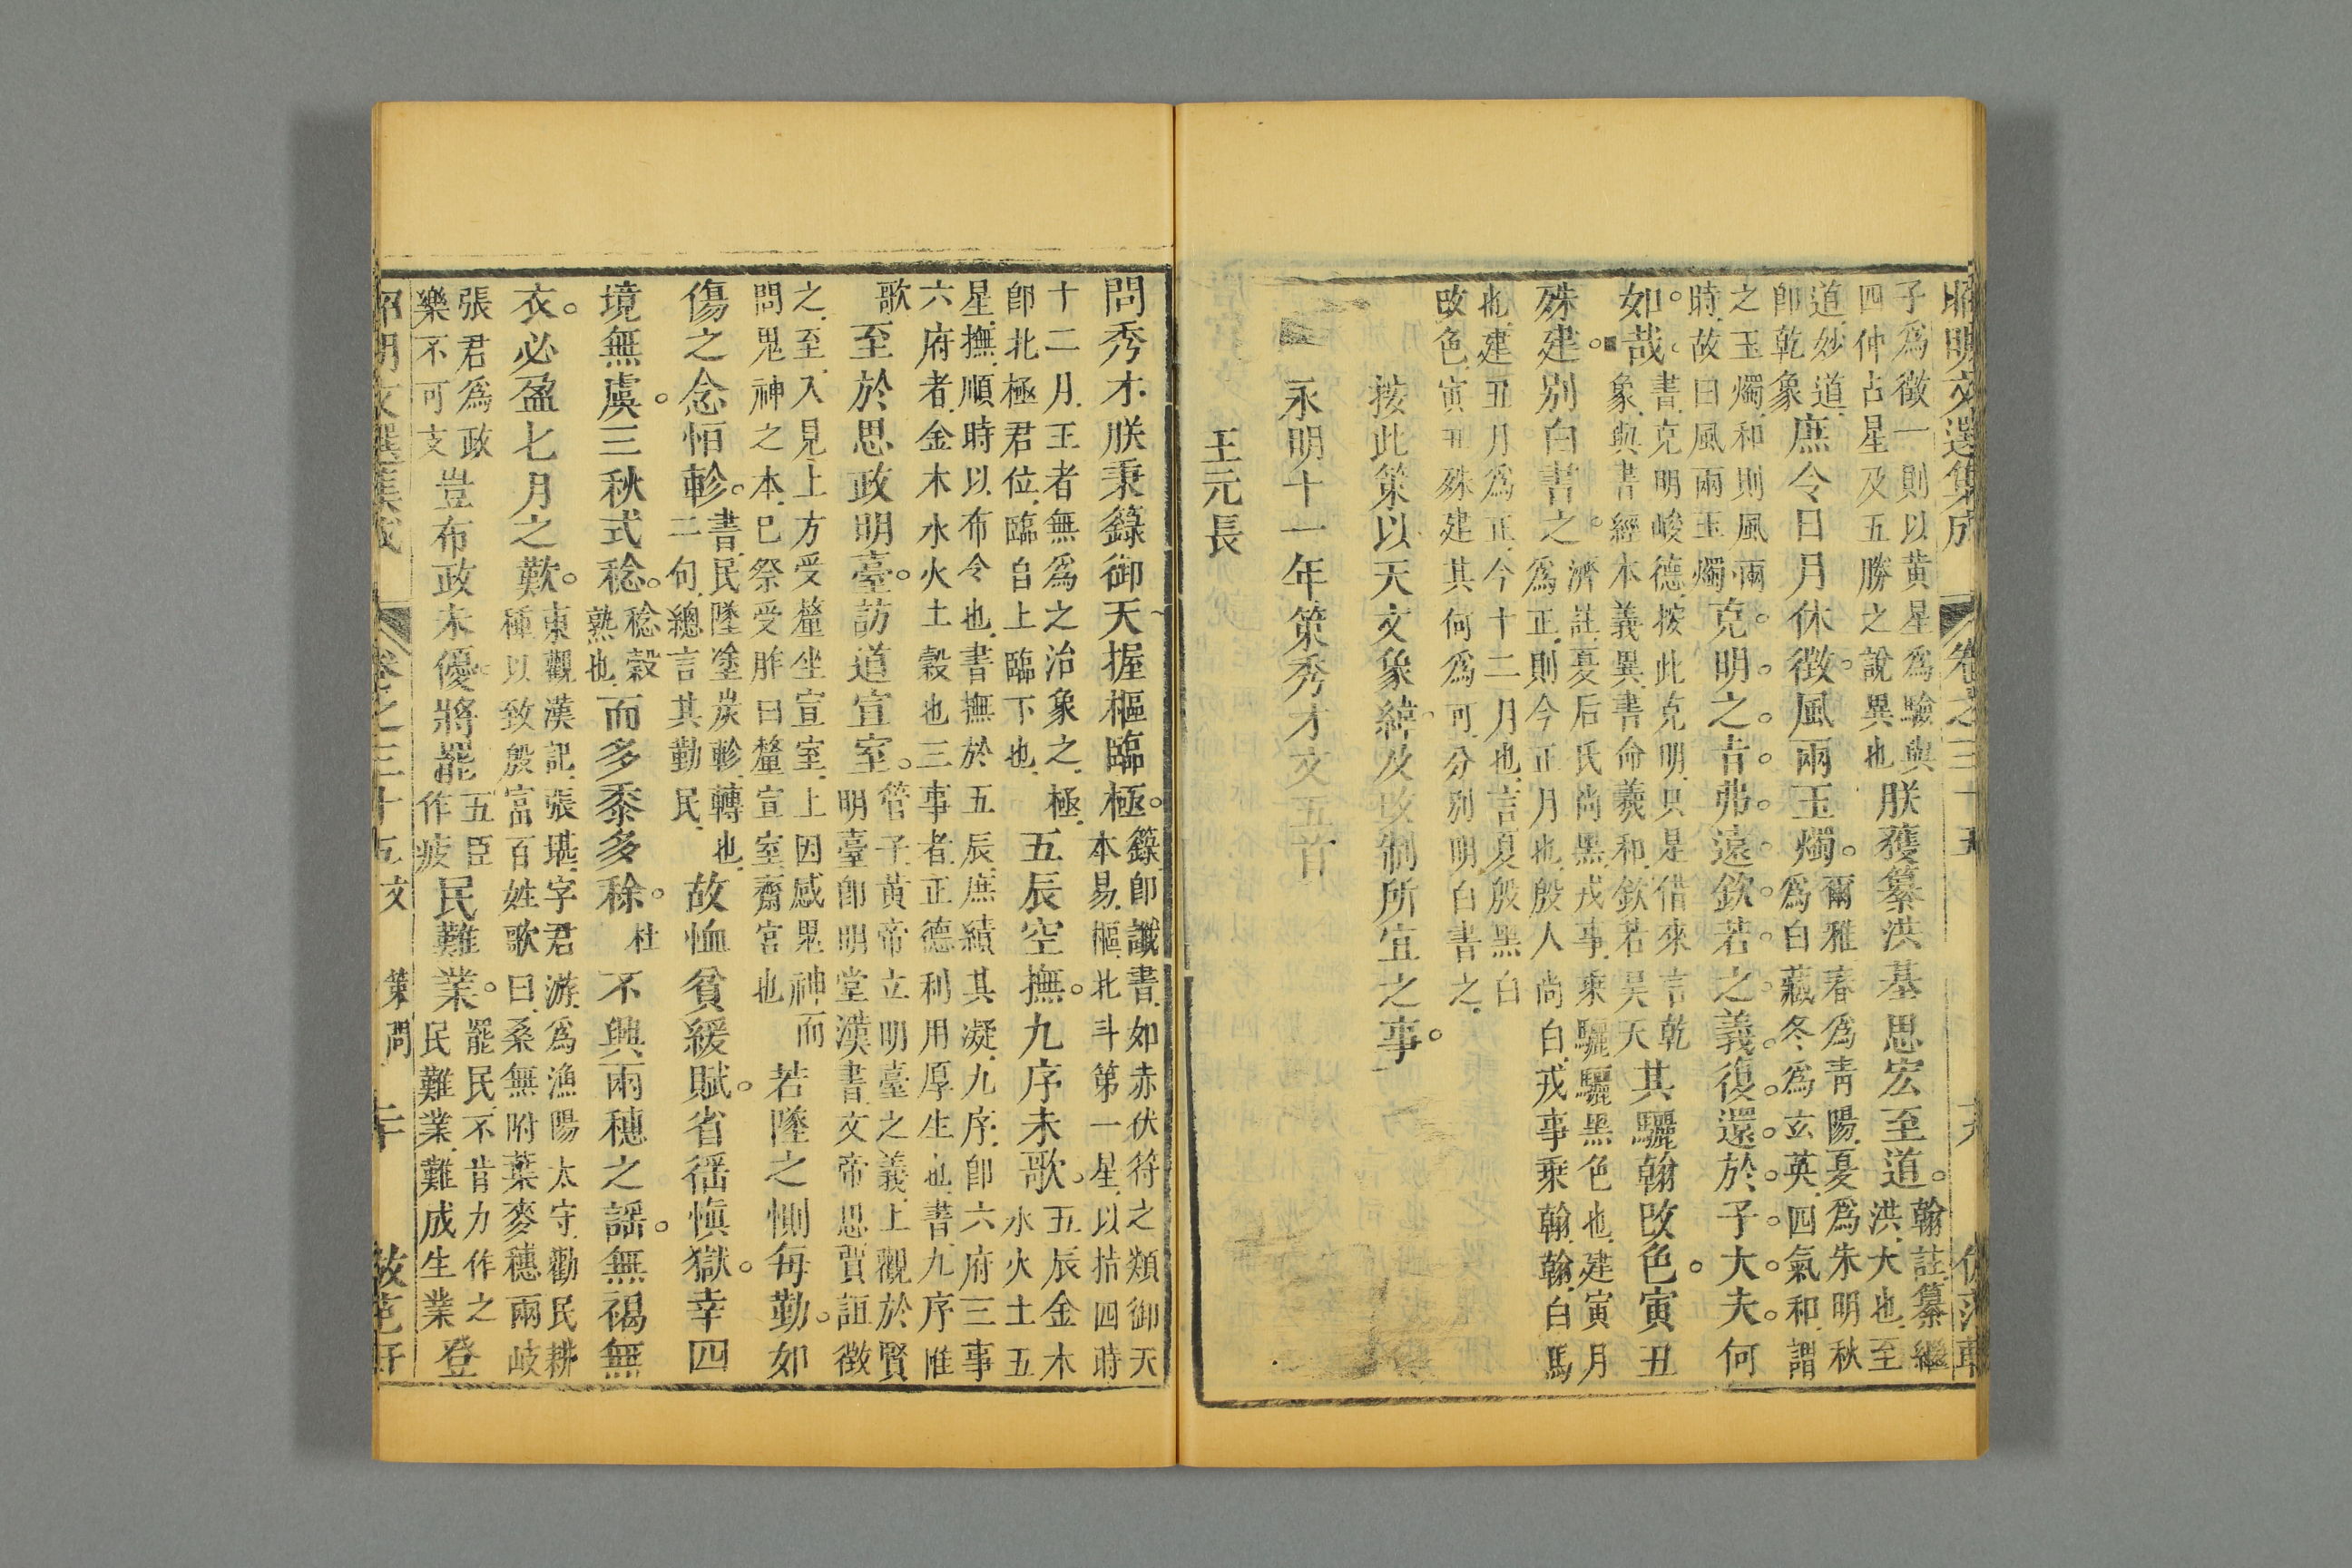 子爲徵一則以黄星爲驗與
四仲占星及五勝之說異也
朕獲纂洪基思宏至道
翰註纂繼
洪大也至
道妙道
卽乾象
庶令日月休徵風雨玉燭
爾雅春爲青陽夏爲朱明秋
爲白藏冬爲玄英四氣和謂
之玉燭和則風雨
時故曰風雨玉燭
克明之旨弗遠欽若之義復還於子大夫何
如哉
書克明峻德按此克明只是借來言乾
象與書經本義異書命羲和欽若昊天
其驪翰改色寅丑
殊建别白書之
濟註夏后氏尚黑戎事乘驪驪黑色也建寅月
爲正則今正月也殷人尚白戎事乘翰翰白馬
也建丑月爲正今十二月也言夏殷黑白
改色寅丑殊建其何爲可分别明白書之
按此策以天文象緯及改制所宜之事
永明十一年策秀才文五首
王元長
問秀才朕秉籙御天握樞臨極
籙卽讖書如赤伏符之類御天
本易樞北斗第一星以拮四時
十二月王者無爲之治象之極
卽北極君位臨自上臨下也
五辰空撫九序未歌
五辰金木
水火土五
星撫順時以布令也書撫於五辰庶績其凝九序卽六府三事
六府者金木水火土穀也三事者正德利用厚生也書九序惟
歌
至於思政明臺訪道宣室
管子黄帝立明臺之義上觀於賢
明臺卽明堂漢書文帝思賈誼徵
之至入見上方受釐坐宣室上因感鬼神而
問鬼神之本已祭受胙曰釐宣室齋宮也
若墜之惻每勤如
傷之念恒軫
書民墜塗炭軫轉也
二句總言其勤民
故恤貧緩賦省徭愼獄幸四
境無虞三秋式稔
稔穀
熟也
而多黍多稌
杜
不興兩穗之謡無褐無
衣必盈七月之歎
東觀漢記張堪字君游爲漁陽太守勸民耕
種以致殷富百姓歌曰桑無附葉麥穗兩岐
張君爲政
樂不可支
豈布政未優將罷
五臣
作疲
民難業
罷民不肯力作之
民難業難成生業
登
昭明文選集成
卷之三十五
文
策問